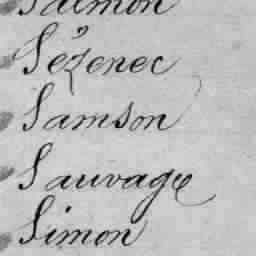 Salmon
Sézenec
Samson
Sauvage
Simon